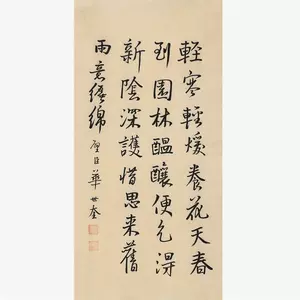 輕寒輕煖養花天春
到園林醞釀便乞得
新陰深護惜思來舊
雨意纏綿
璧臣華世奎